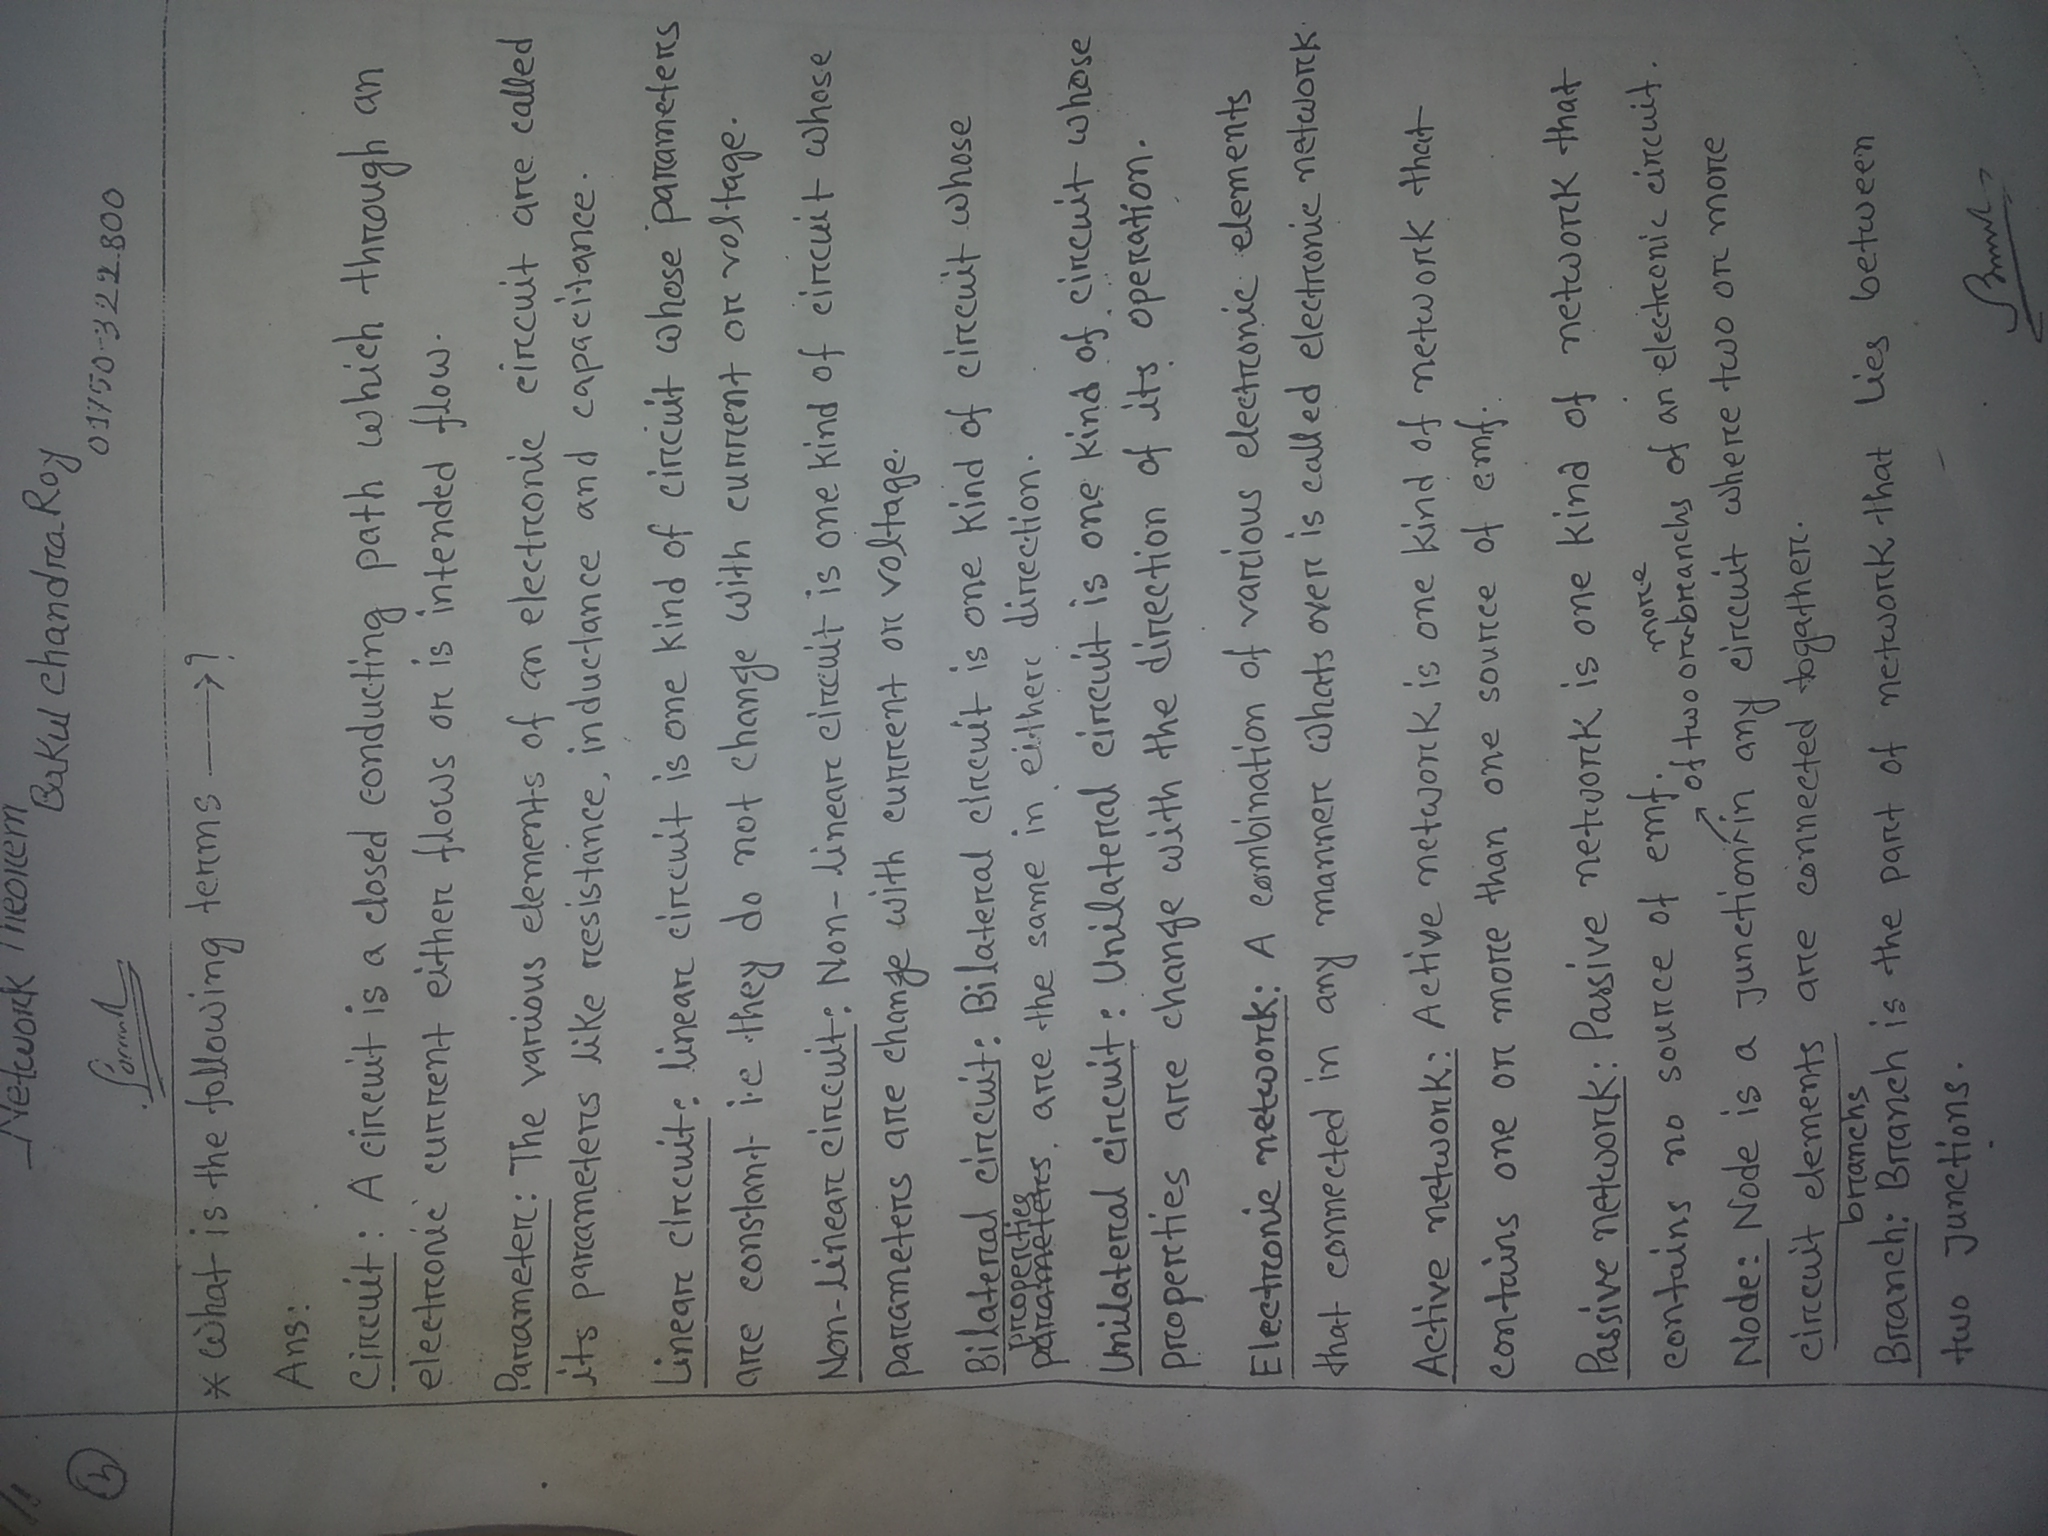 Network Theorem
Bakul Chandra Roy
01750-322800
* What is the following terms ⟶?
Ans:
Circuit: A circuit is a closed conducting path which through an
electronic current either flows or is intended flow.
Parameter: The various elements of an electronic circuit are called
its parameters like resistance, inductance and capacitance.
Linear circuit: linear circuit is one kind of circuit whose parameters
are constant i.e they do not change with current or voltage.
Non-linear circuit: Non-linear circuit is one kind of circuit whose
parameters are change with current or voltage.
Bilateral circuit: Bilateral circuit is one kind of circuit whose
properties
parameters, are the same in either direction.
Unilateral circuit: Unilateral circuit is one kind of circuit whose
properties are change with the direction of its operation.
Electronic network: A combination of various electronic elements
that connected in any manner whats over is called electronic network.
Active network: Active network is one kind of network that
contains one or more than one source of emf.
Passive network: Passive network is one kind of network that
contains no source of emf.
more
of two or branchs of an electronic circuit.
Node: Node is a junction in any circuit where two or more
circuit elements are connected togather.
branchs
Branch: Branch is the part of network that lies between
two junctions.